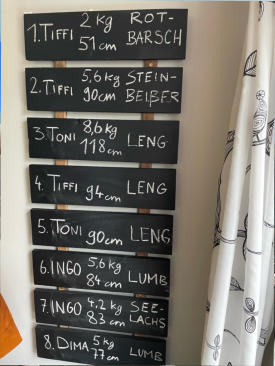 1. TIFFI 2 kg ROT-
51 cm BARSCH
2. TIFFI 5,6 kg STEIN-
90 cm BEIßER
3. TONI 8,6 kg
118 cm LENG
4. TIFFI 94 cm LENG
5. TONI 90 cm LENG
6. INGO 5,6 kg
84 cm LUMB
7. INGO 4,2 kg SEE-
83 cm LACHS
8. DIMA 5 kg
77 cm LUMB